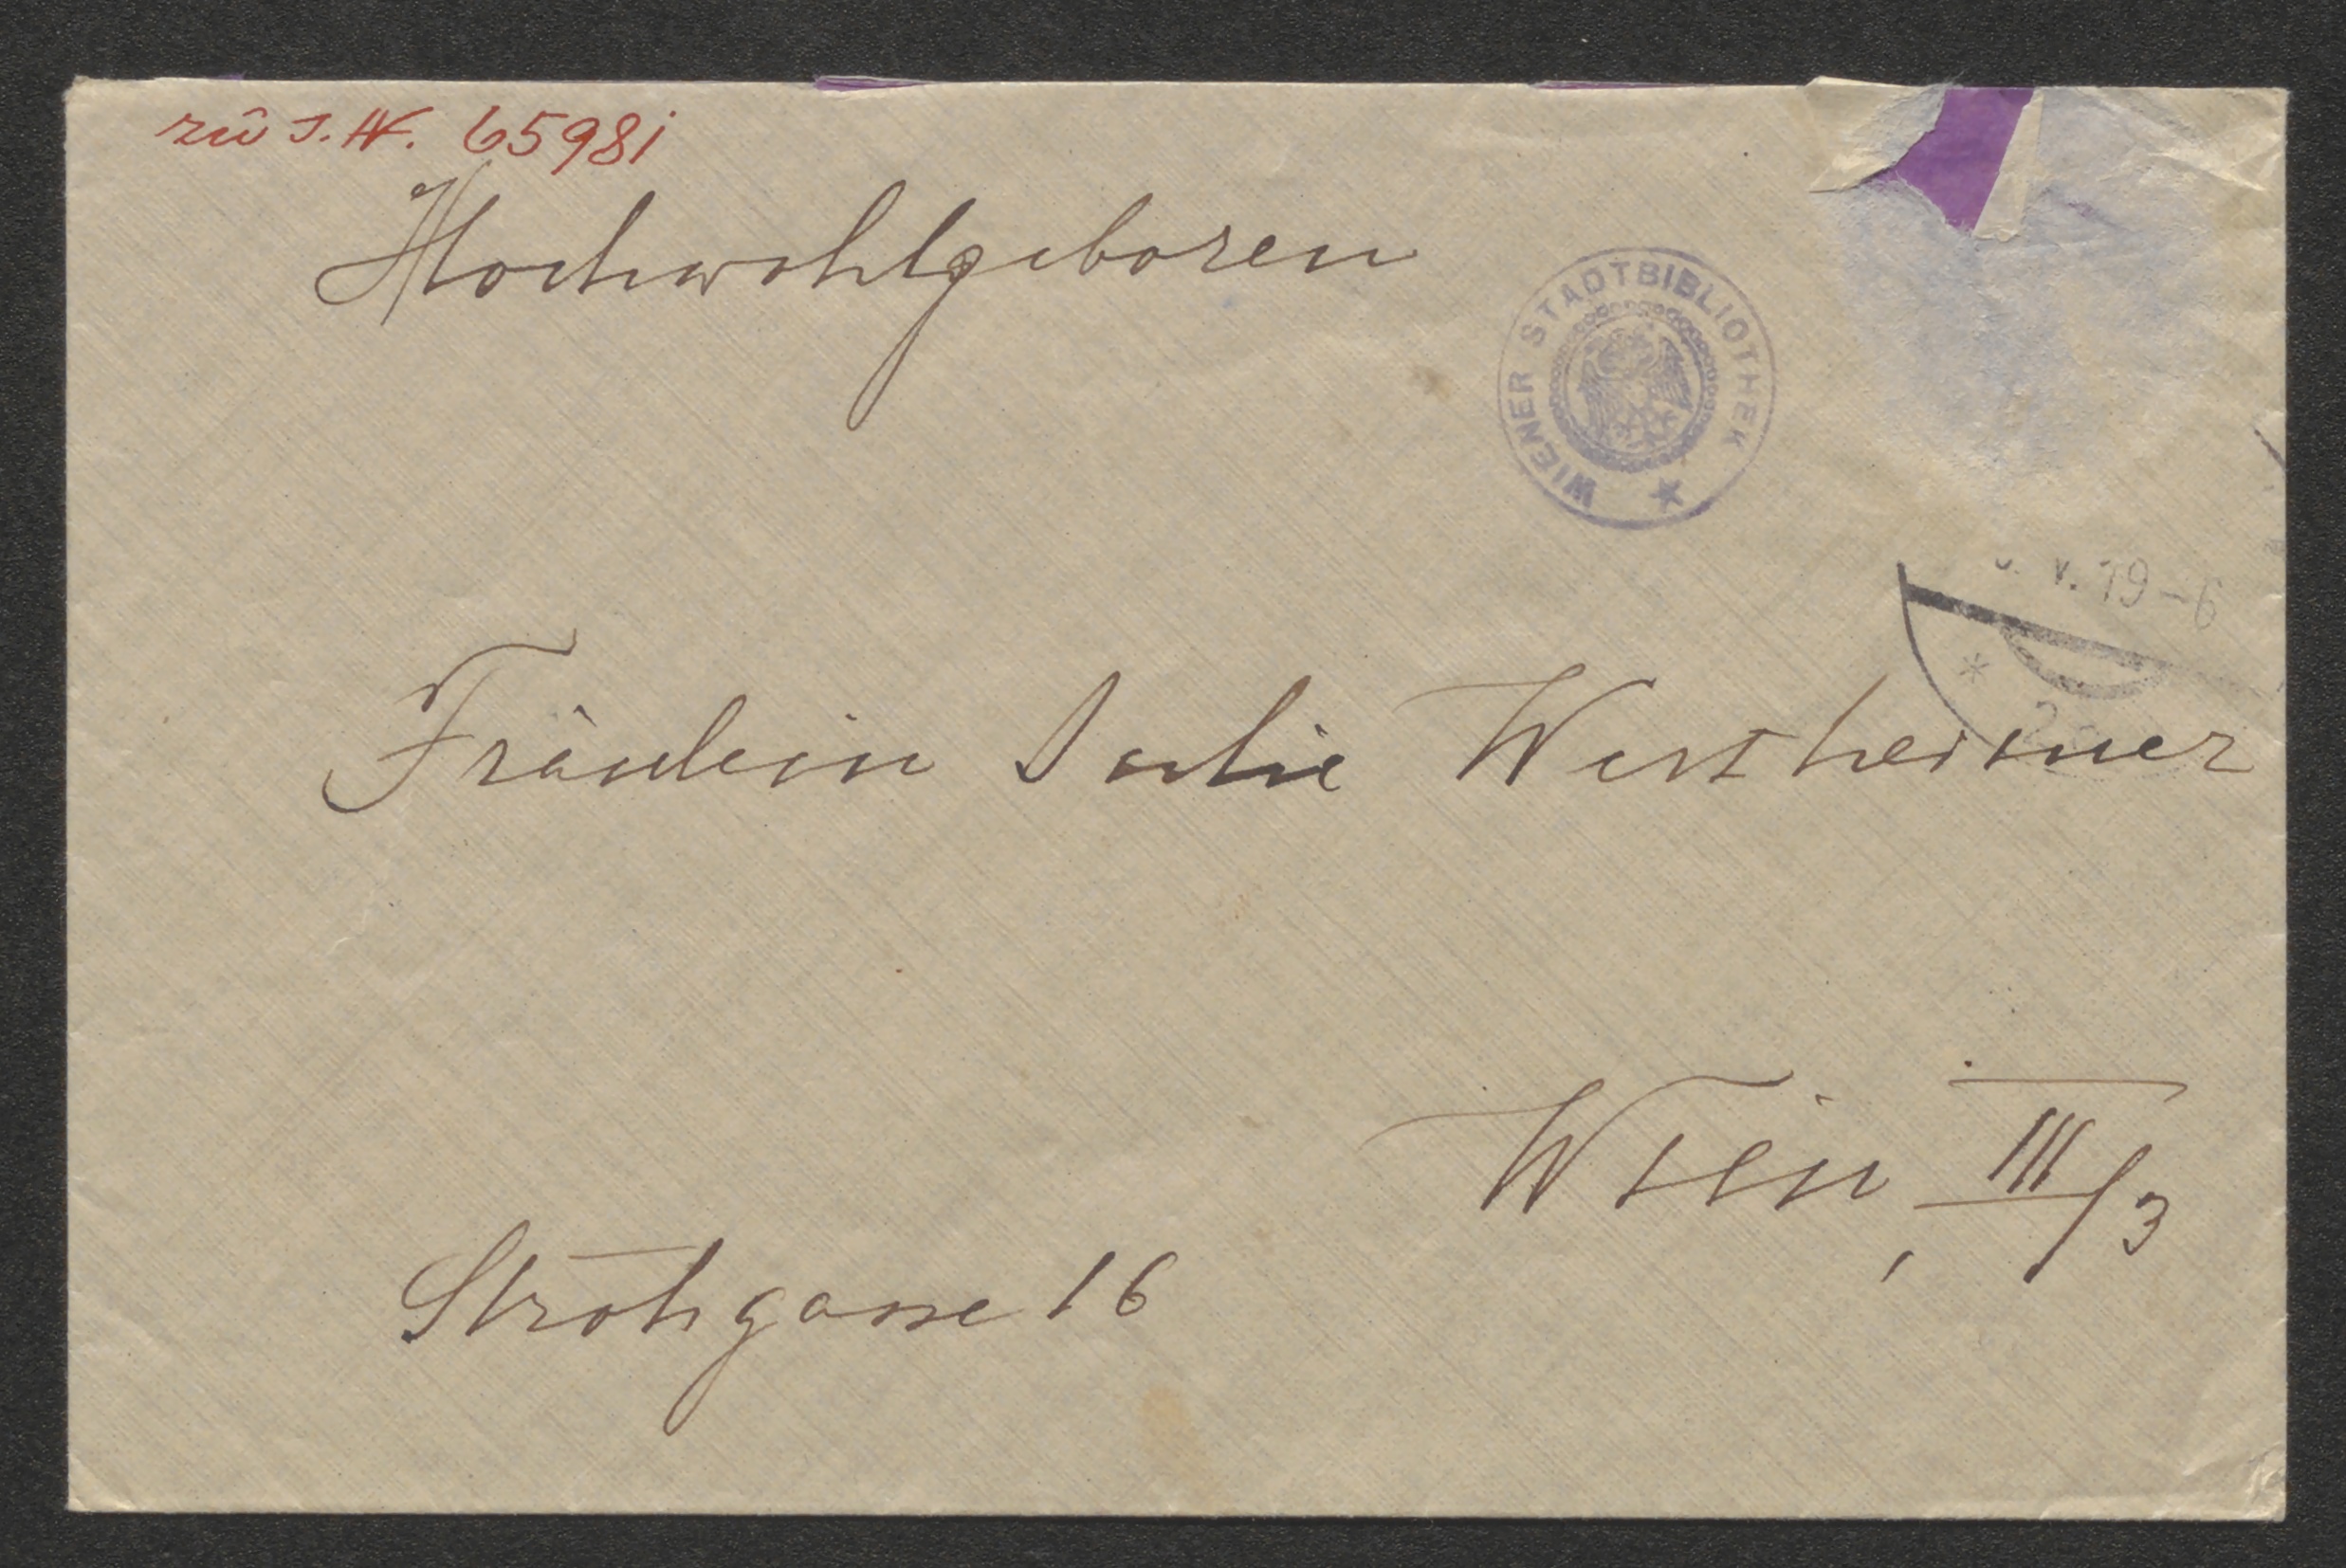 zu J.N. 65981
Hochwohlgeboren
WIENER STADTBIBLIOTHEK
V. 19–6
Fräulein Julie Wertheimer
Wien, III/3
Strohgasse 16